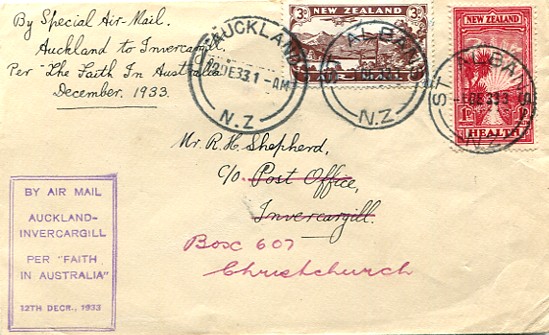 By Special Air-Mail.
Auckland to Invercargill.
Per "The Faith In Australia"
December. 1933.
3D NEW ZEALAND 3D
AIR MAIL
NEW ZEALAND
1D
HEALTH
AUCKLAND
DE33.1-AM
N.Z
ST. ALBANS
N.Z
ST. ALBANS
DE 33
Mr. R. H. Shepherd,
c/o Post Office,
Invercargill.
Box 607
Christchurch
BY AIR MAIL
AUCKLAND-
INVERCARGILL
PER "FAITH
IN AUSTRALIA"
12TH DECR., 1933